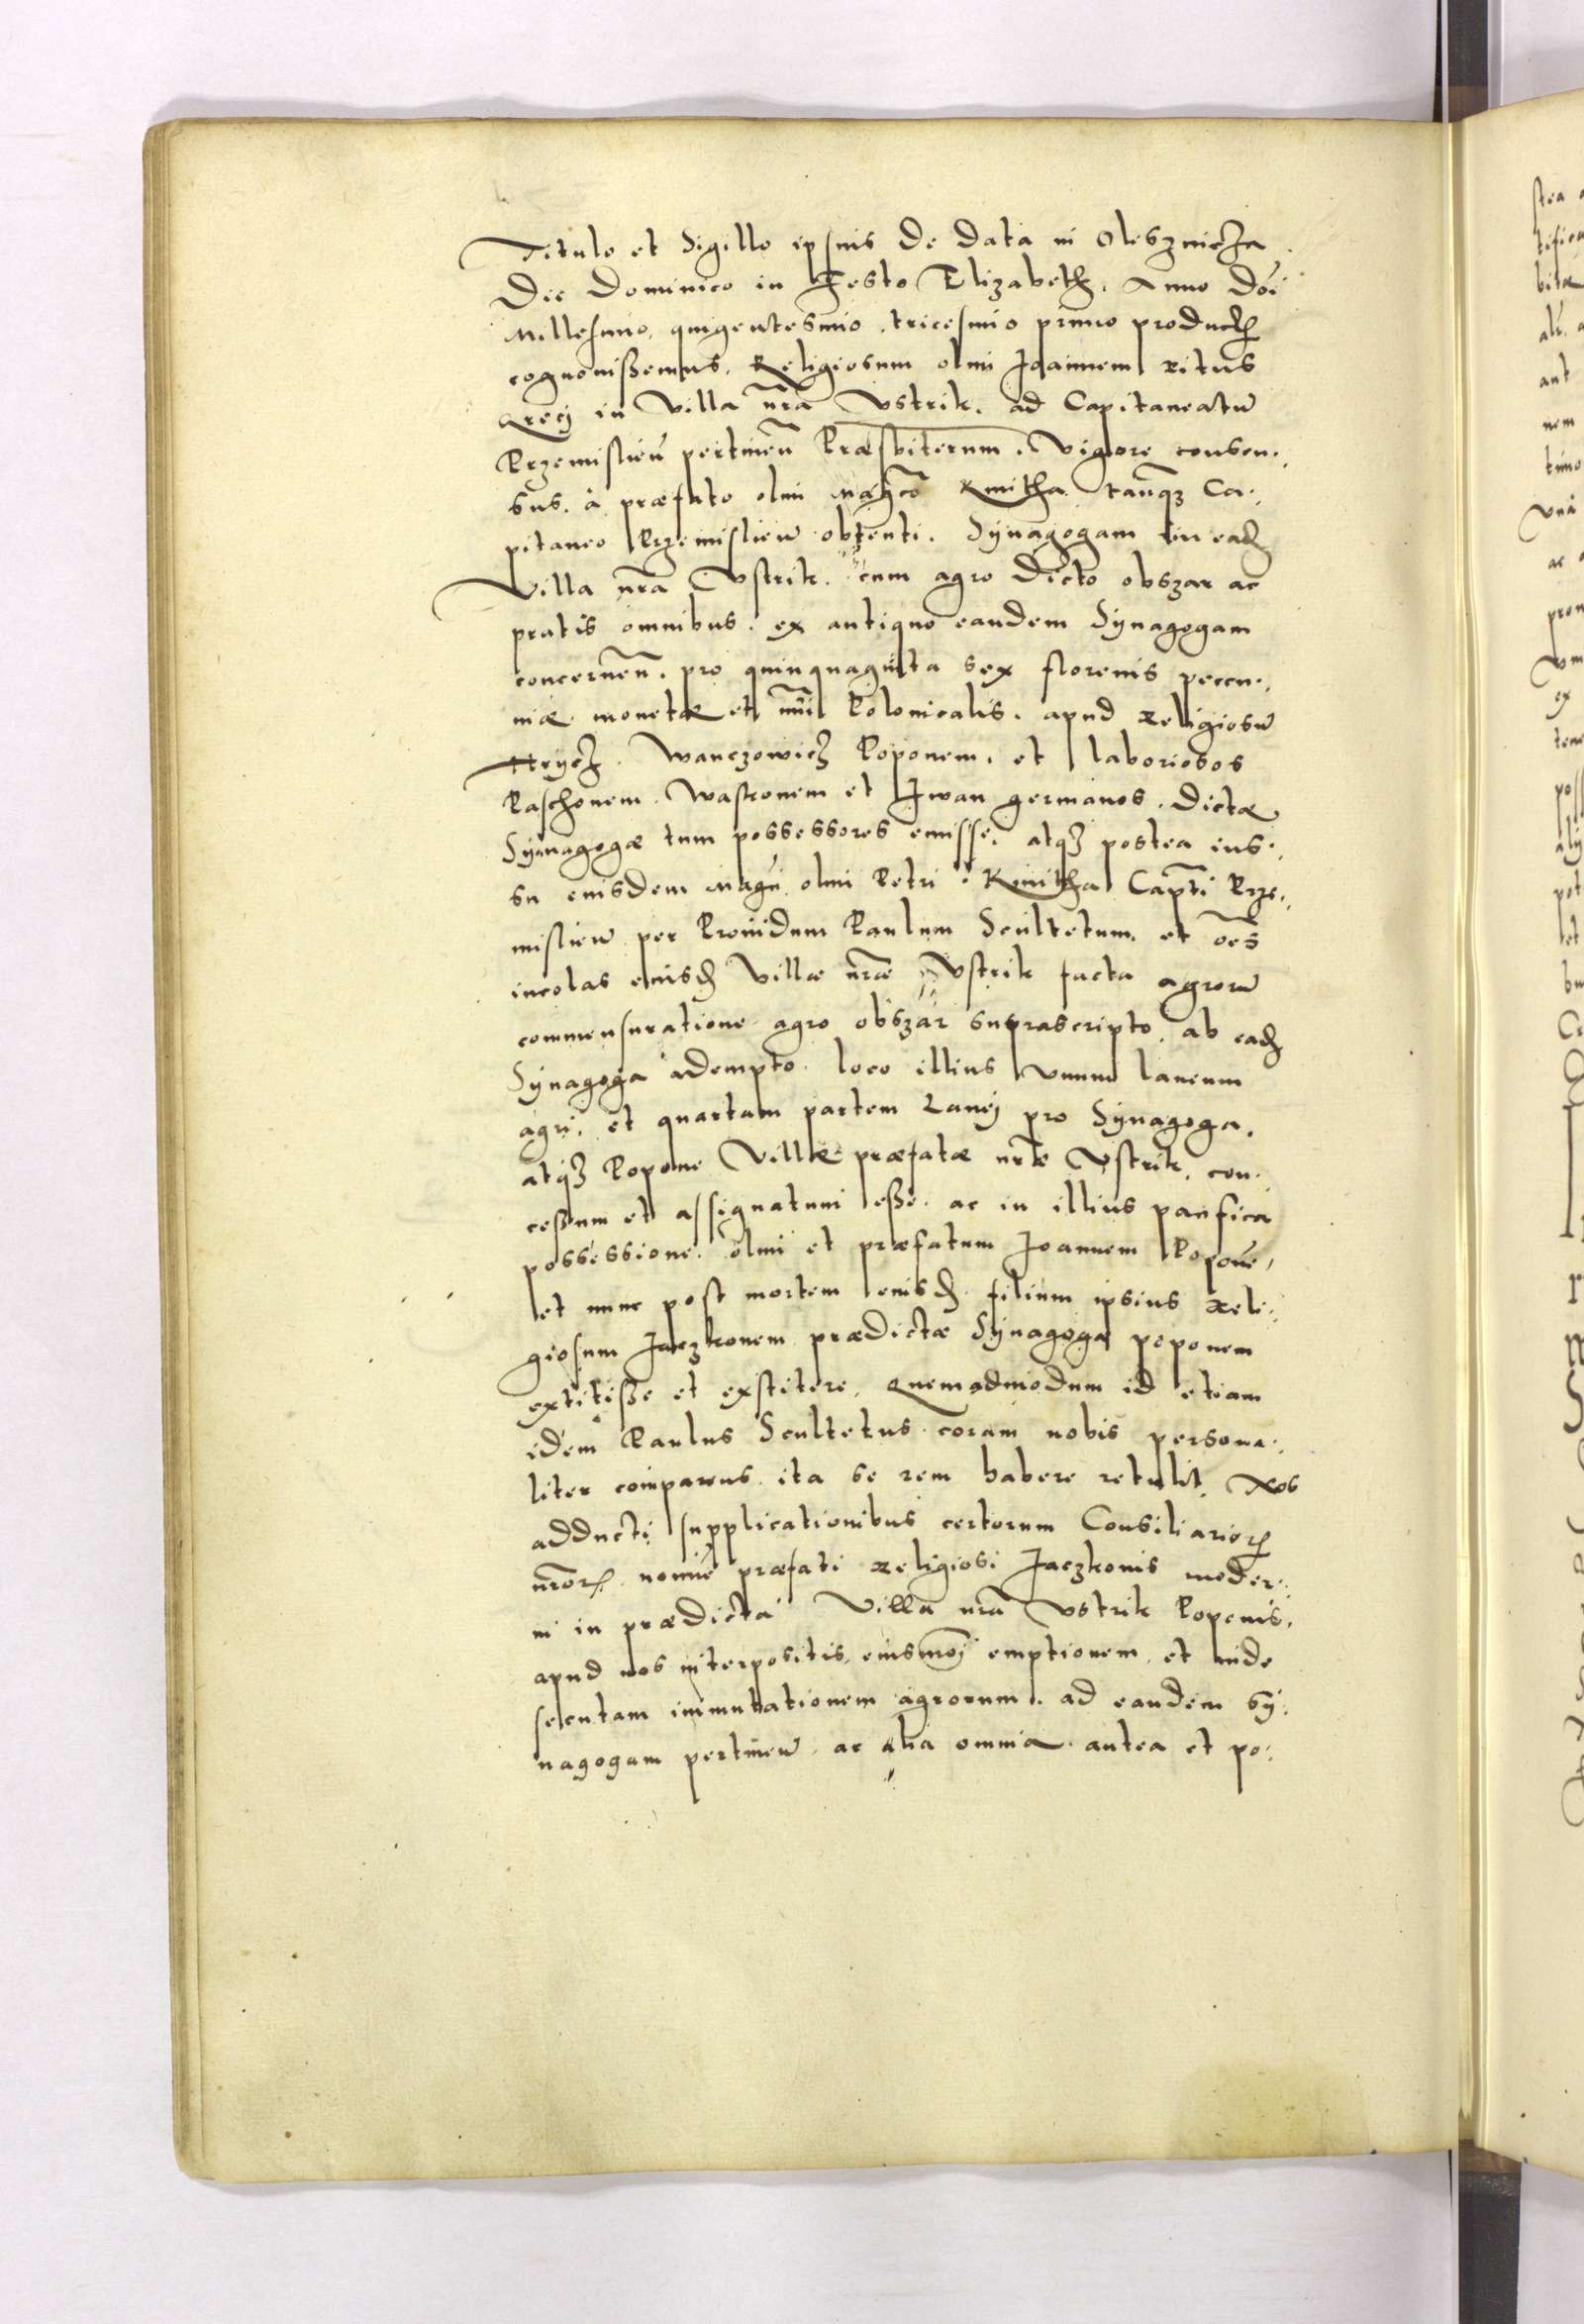 Titulo et Sigillo ipsius De Data in Olesznicza
Die Dominico in Festo Elizabeth. Anno Doi
Millesimo. quigentesimo. tricesimo primo product
cognovissemus. Religiosum olim Joannem ritus
Greci in Villa nra Vstrik. ad Capitaneatu
Przemislien pertinen Præsbiterum. Vigore consen.,
sus. à præfato olim Magco Kmitha tanq; Ca.,
pitaneo Przemislien obtenti. Synagogam in ead
Villa nra Vstrik. cum agro Dicto obszar ac
pratis omnibus. ex antiquo eandem Synagogam
concernen. pro quinquaginta sex florenis peccu.,
niæ monetæ et nui Polonicalis. apud religiosu
Hrycz. Wanczowicz Poponem. et laboriosos
Paschonem. Wasconem et Iwan germanos. Dictæ
Synagogæ tum possessores emisse. atq; postea ius.,
su eiusdem Magci olim Petri. Kmitha Capti Prze.,
mislien per Providum Paulum Scultetum. et oes
incolas eiusd Villæ nræ Vstrik facta agroru
commensuratione agro obszar suprascripto. ab ead
Synagoga adempto. loco illius Vnum laneum
agri. et quartam partem Lanej pro Synagoga.
atq; Popone Villæ præfatæ nræ Vstrik. con.
cessum et assignatum esse. ac in illius pacifica
possessione. olim et præfatum Joannem Popone,
et nunc post mortem eiusd filium ipsius reli.,
giosum Jaczkonem prædictæ Synagogæ poponem
extitisse et existere. Quemadmodum id etiam
idem Paulus Scultetus coram nobis persona.,
liter comparens ita se rem habere retulit. Nos
adducti supplicationibus certorum Consiliarior
nror. nomine præfati religiosi Jaczkonis moder.,
ni in prædicta Villa nra Vstrik Poponis.
apud nos interpositis. eiusmoi emptionem. et inde
secutam immutationem agrorum. ad eandem Sy.,
nagogam pertinen. ac alia omnia. antea et po.,